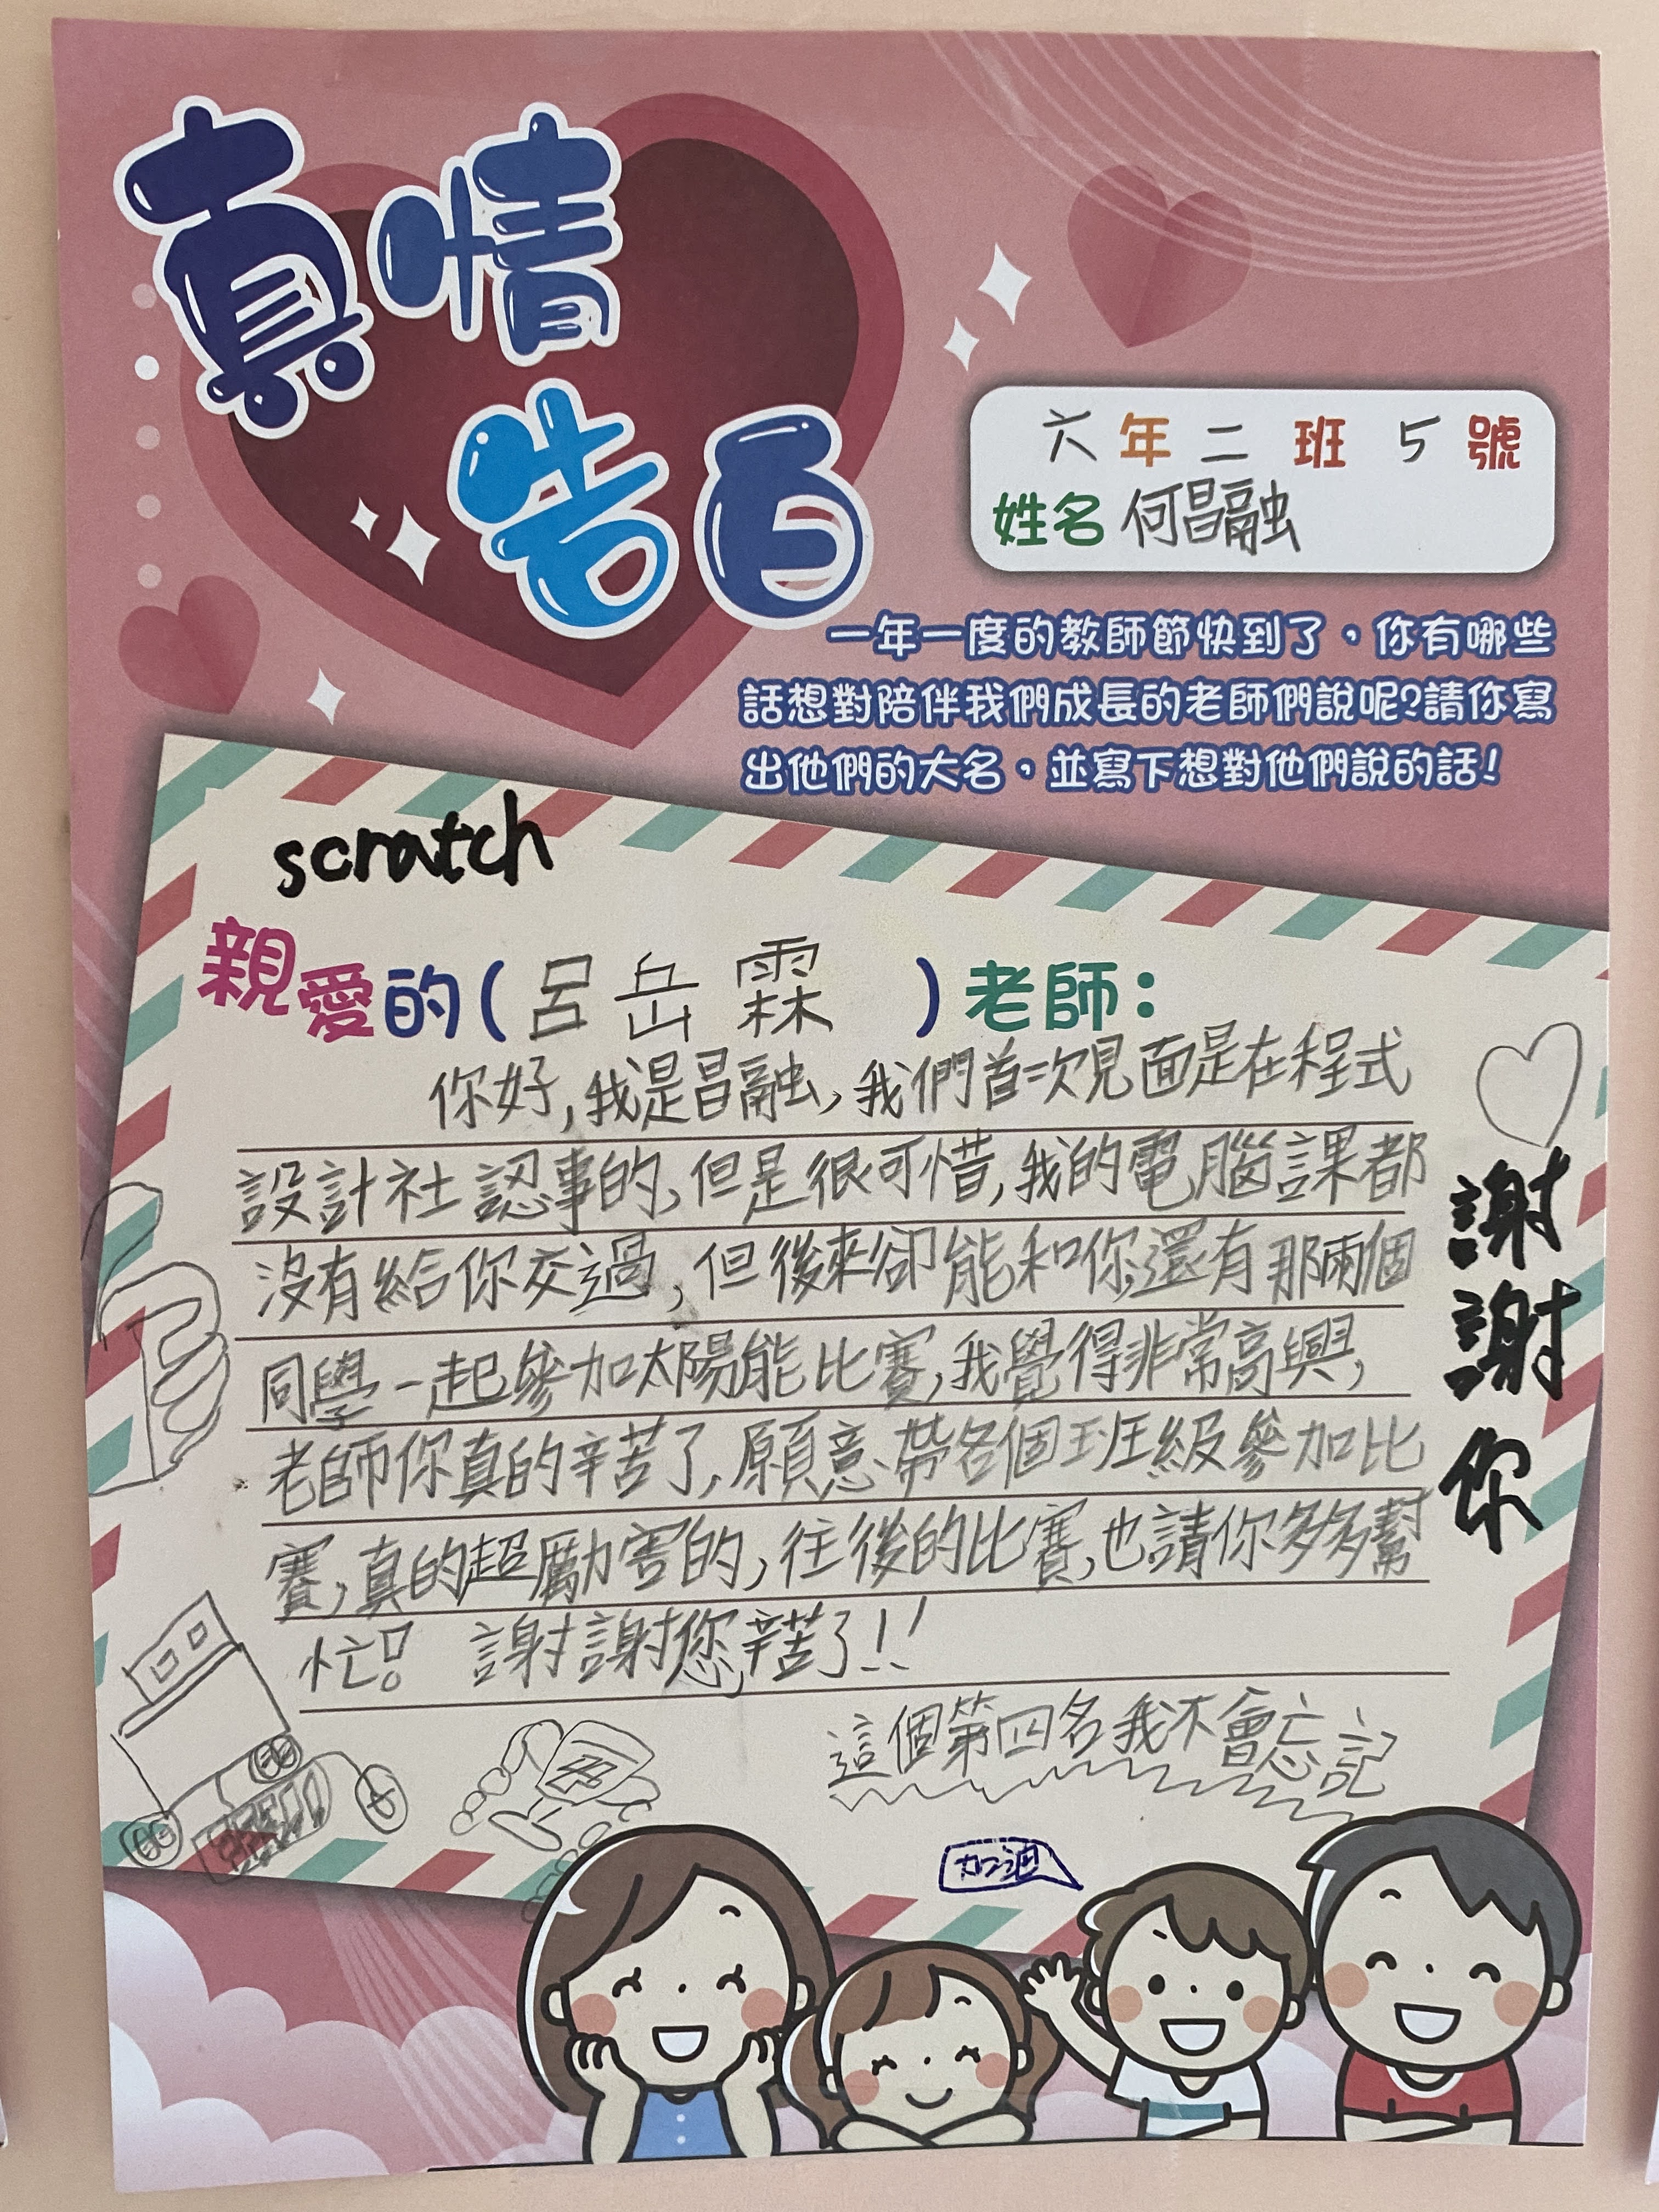 真情
告白
六年二班5號
姓名 何昌融
一年一度的教師節快到了，你有哪些
話想對陪伴我們成長的老師們說呢?請你寫
出他們的大名，並寫下想對他們說的話!
scratch
親愛的(呂岳霖)老師:
你好,我是昌融,我們首次見面是在程式
設計社認事的,但是很可惜,我的電腦課都
沒有給你交過,但後來卻能和你還有那兩個
同學一起參加太陽能比賽,我覺得非常高興,
老師你真的辛苦了,願意帶各個班級參加比
賽,真的超勵害的,往後的比賽,也請你多多幫
忙! 謝謝您,辛苦了!!
這個第四名我不會忘記
謝謝你
加油